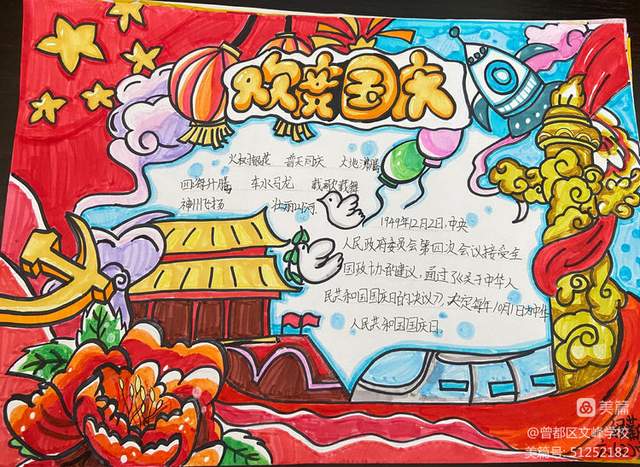 欢度国庆
火树银花 普天同庆 大地沸腾
四海升腾 车水马龙 载歌载舞
神州飞扬 壮丽山河
1949年12月2日,中央
人民政府委员会第四次会议接受全
国政协的建议,通过了《关于中华人
民共和国国庆日的决议》,决定每年10月1日为中华
人民共和国国庆日.
美篇
@曾都区文峰学校
美篇号:51252182